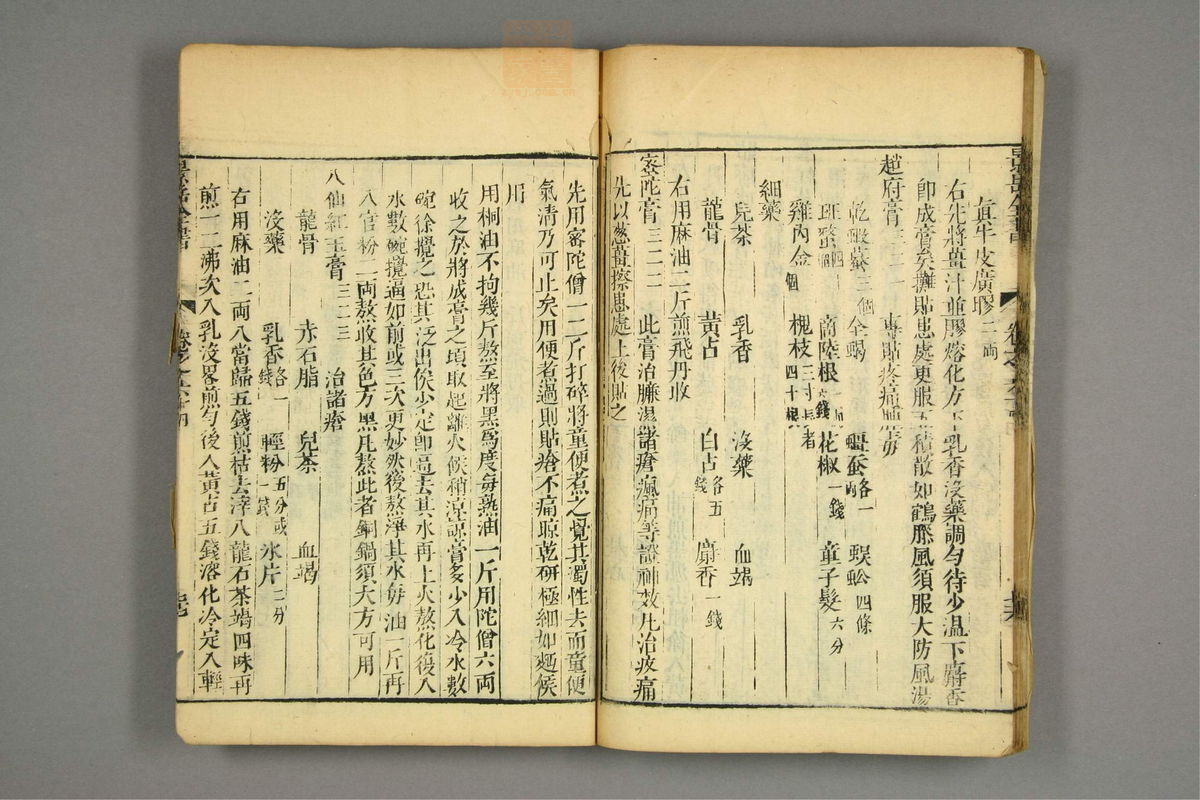 真牛皮廣膠二兩
右先將薑汁並膠熔化方下乳香沒藥調勻待少溫下麝香
即成膏矣攤貼患處更服五積散如鶴膝風須服大防風湯
趙府膏 專貼疼痛腫毒
乾蝦蟆三個 全蝎 殭蚕各一兩 蜈蚣四條
斑蝥 商陸根 花椒一錢 童子髮六分
雞內金 個 槐枝三寸長者四十根
細藥
兒茶 乳香 沒藥 血竭
龍骨 黃占 白占各五錢 麝香一錢
右用麻油二斤煎飛丹收
密陀膏三二二 此膏治臁濕諸瘡瘋痛等證神效凡治疼痛
先以葱薑擦患處上後貼之
先用密陀僧一二斤打碎將童便煮之覺其濁性去而童便
氣清乃可止矣用便煮過則貼瘡不痛晾乾研極細如麪候
用
用桐油不拘幾斤熬至將黑為度每熟油一斤用陀僧六兩
收之於將成膏之頃取起離火候稍涼諒膏多少入冷水數
碗徐攪之恐其泛出俟少定即逼去其水再上火熬化復入
水數碗攪逼如前或三次更妙然後熬淨其水每油一斤再
入官粉二兩熬收其色方黑凡熬此者銅鍋須大方可用
八仙紅玉膏三二三 治諸瘡
龍骨 赤石脂 兒茶 血竭
沒藥 乳香各一錢 輕粉五分或一錢 氷片二分
右用麻油二兩入當歸五錢煎枯去滓入龍石茶竭四味再
煎一二沸次入乳沒畧煎勻後入黃占五錢溶化冷定入輕
景岳全書